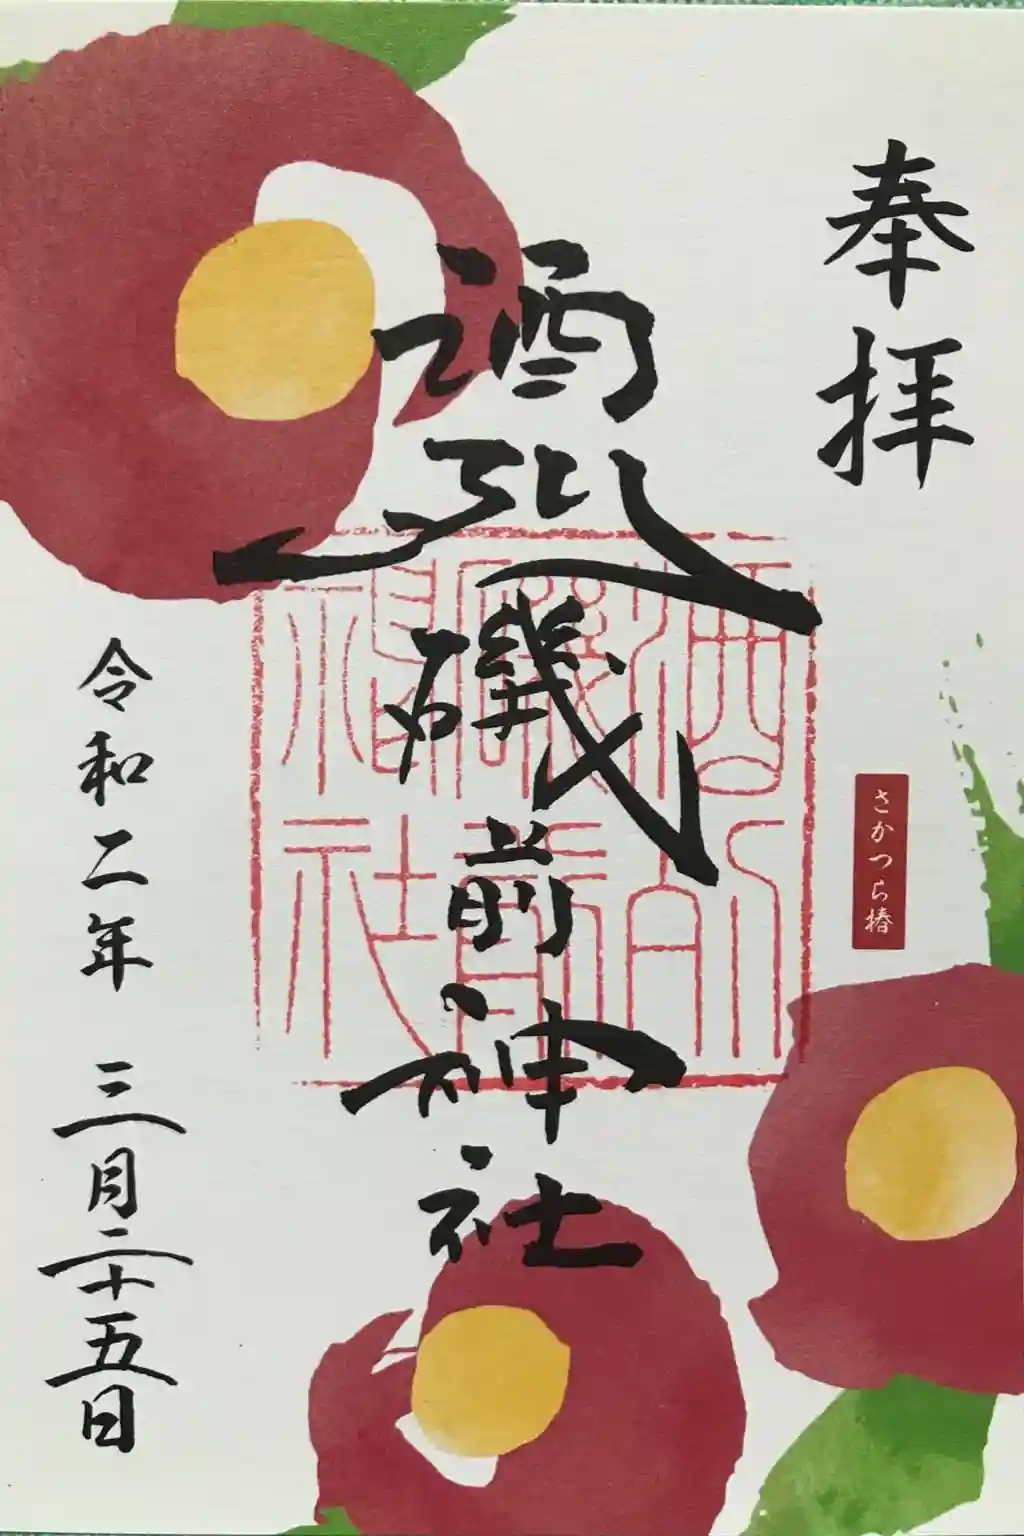 奉拝
さかつら椿
酒列磯前神社
酒列磯前神社
令和二年 三月二十五日